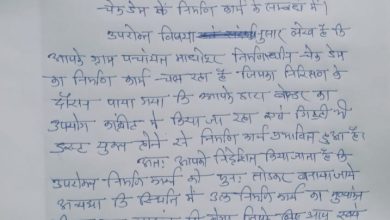 -चेक डेम के निर्माण कार्य के सम्बन्ध में।
उपरोक्त विषया अनुसार लेख है कि
आपके ग्राम पंचायत माधोपुर निर्माणाधीन चेक डेम
का निर्माण कार्य चल रहा है जिसका निरिक्षण के
दौरान पाया गया कि आपके द्वारा का
उपयोग कांक्रीट में किया जा रहा एवं गिट्टी भी
डस्ट युक्त होने से निर्माण कार्य प्रभावित हुआ है।
अतः आपको निर्देशित किया जाता है कि
उपरोक्त निर्माण कार्य को पुनः तोडकर बनाया जाये
अन्यथा कि स्थिति में उक्त निर्माण कार्य का मुल्यांकन